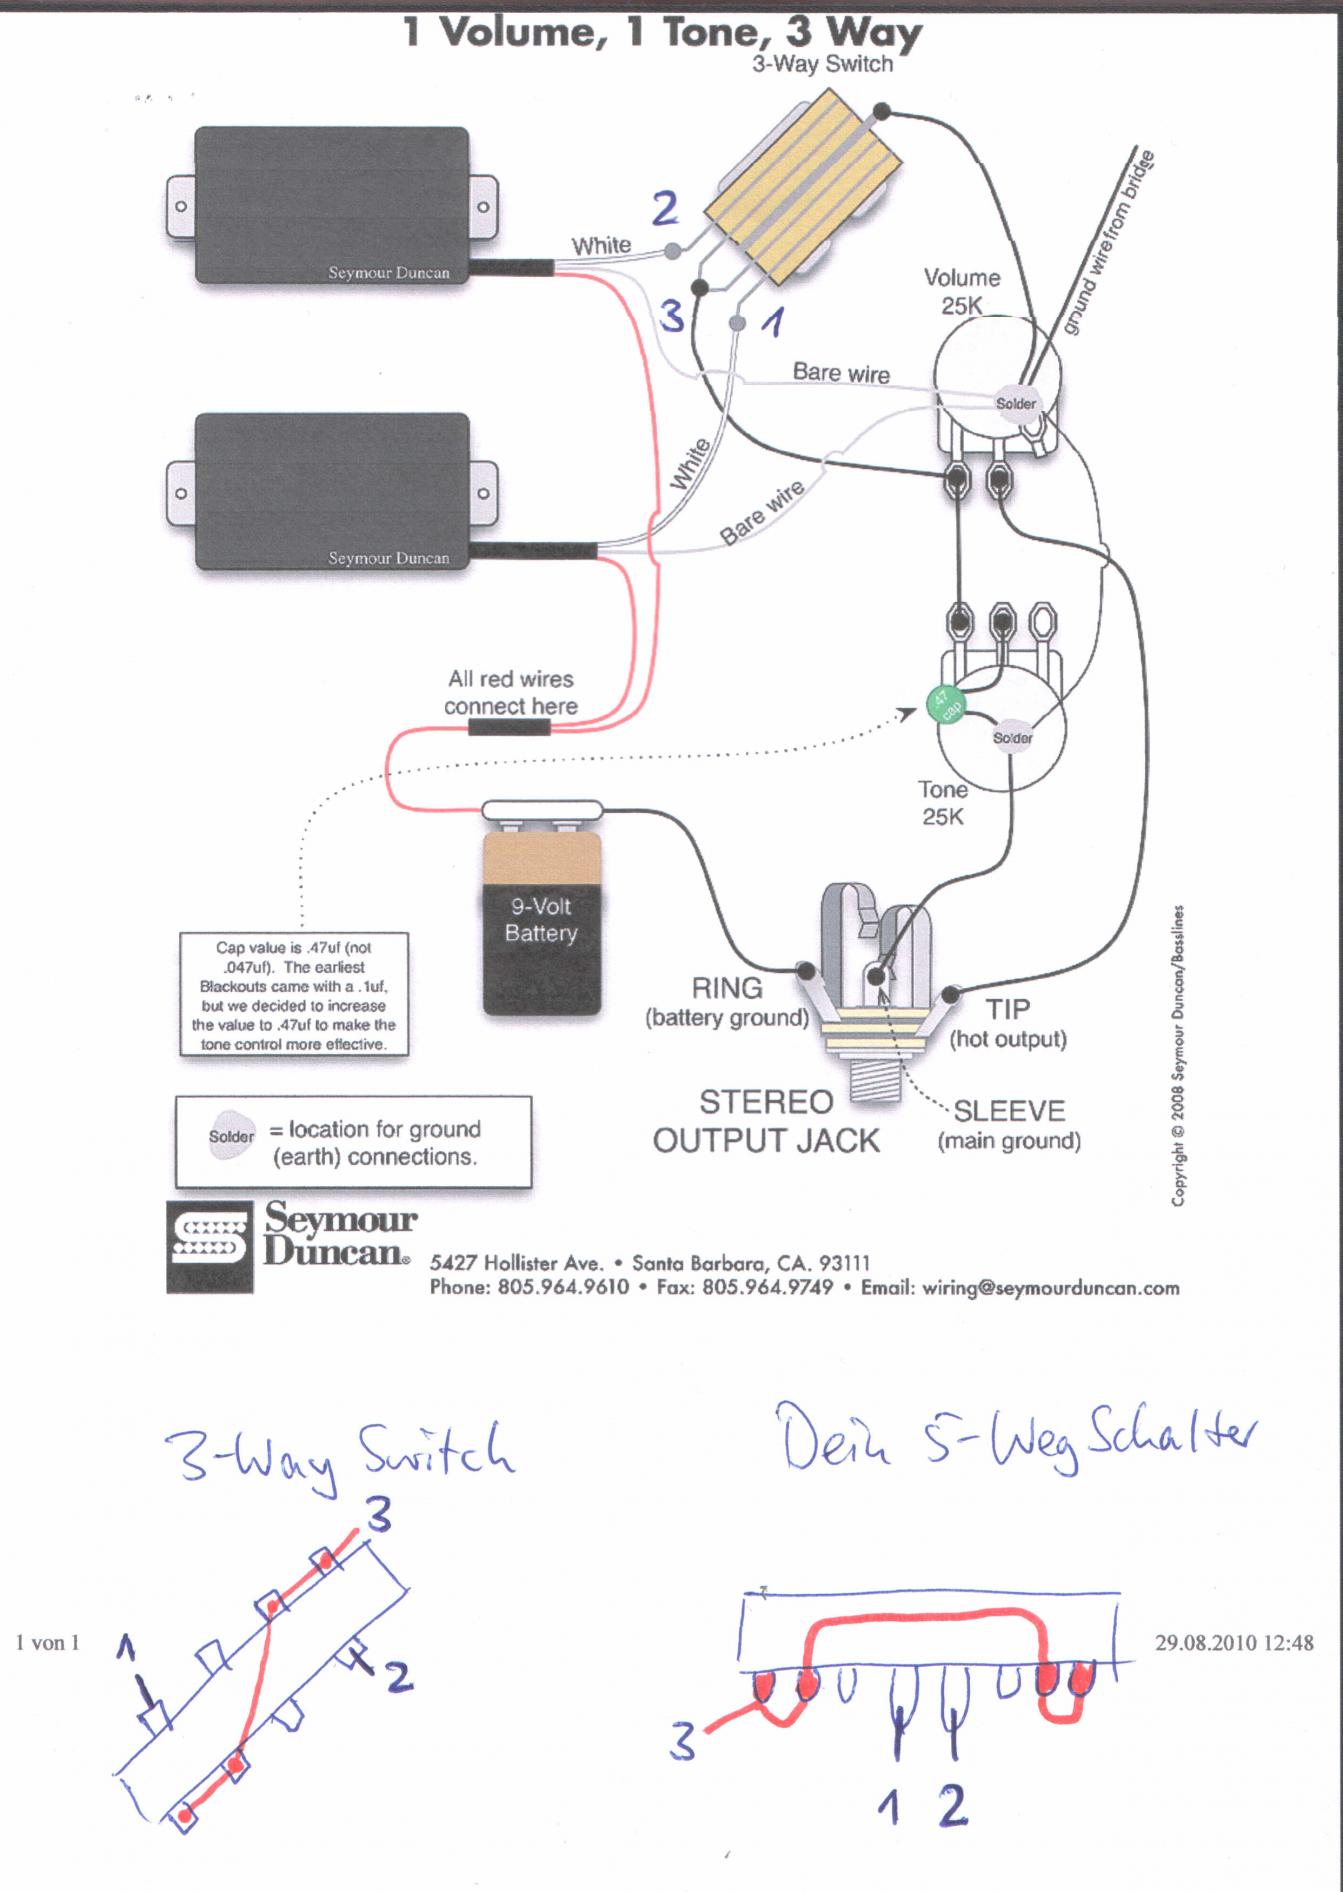 1 Volume, 1 Tone, 3 Way
3-Way Switch
2
White
Seymour Duncan
3
1
Volume
25K
ground wire from bridge
Bare wire
Solder
White
Bare wire
Seymour Duncan
All red wires
connect here
.47
cap
Solder
Tone
25K
9-Volt
Battery
Cap value is .47uf (not
.047uf). The earliest
Blackouts came with a .1uf,
but we decided to increase
the value to .47uf to make the
tone control more effective.
RING
(battery ground)
TIP
(hot output)
STEREO
OUTPUT JACK
SLEEVE
(main ground)
Solder = location for ground
(earth) connections.
Copyright © 2008 Seymour Duncan/Basslines
Seymour
Duncan®
5427 Hollister Ave. • Santa Barbara, CA. 93111
Phone: 805.964.9610 • Fax: 805.964.9749 • Email: wiring@seymourduncan.com
3-Way Switch
Dein 5-Weg Schalter
3
1
2
3
1
2
1 von 1
29.08.2010 12:48